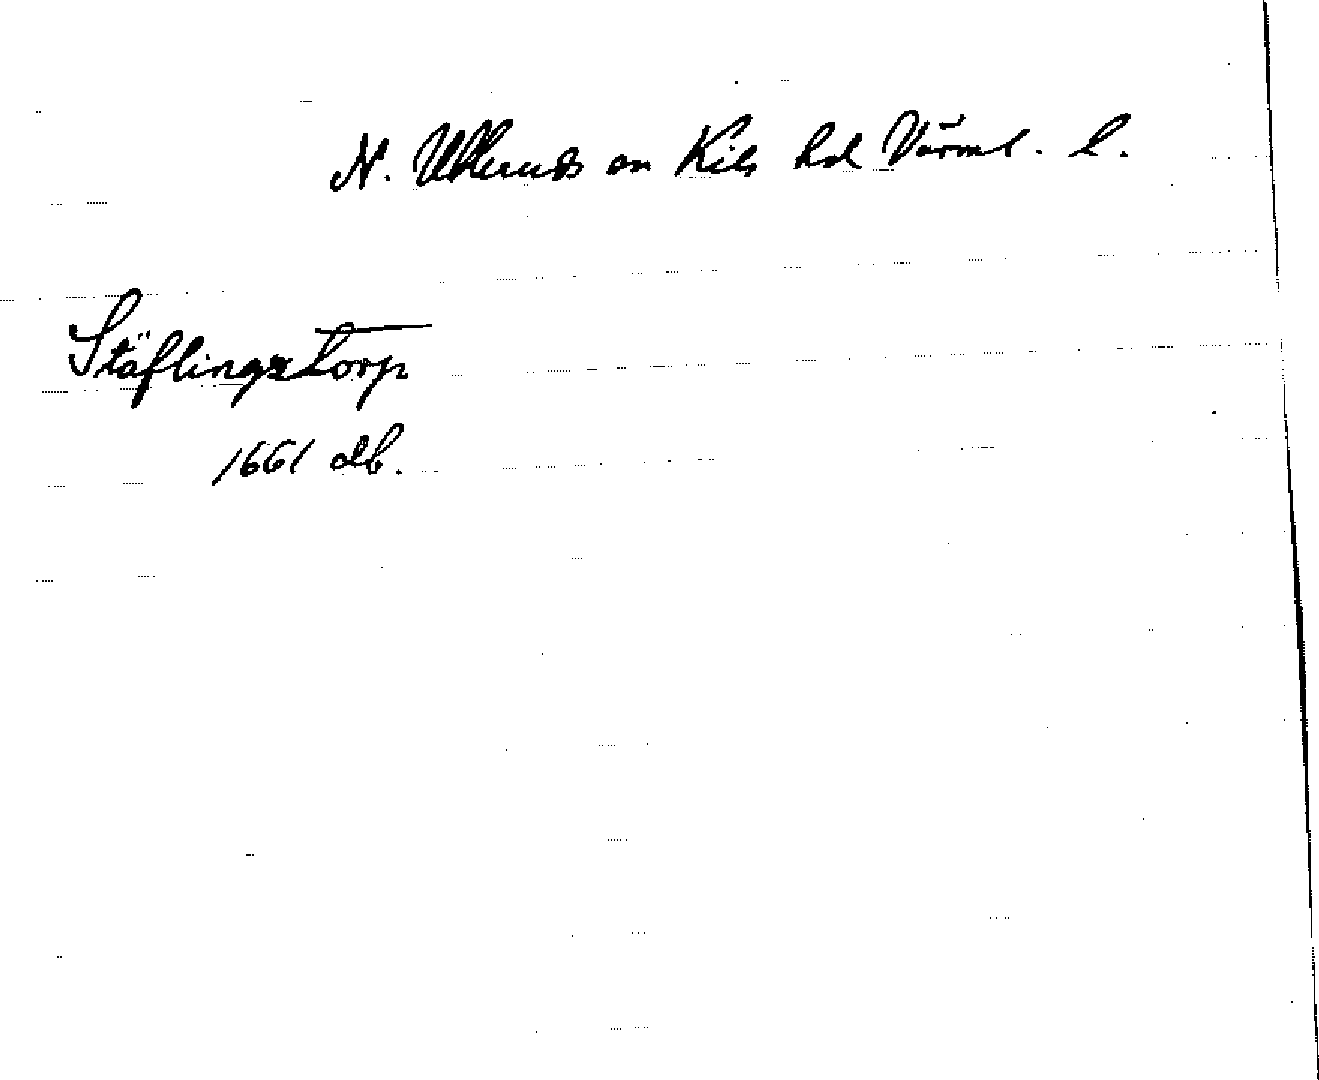 N. Ulleruds sn Kils hd Värml. l.
Stäflingztorp
1661 db.